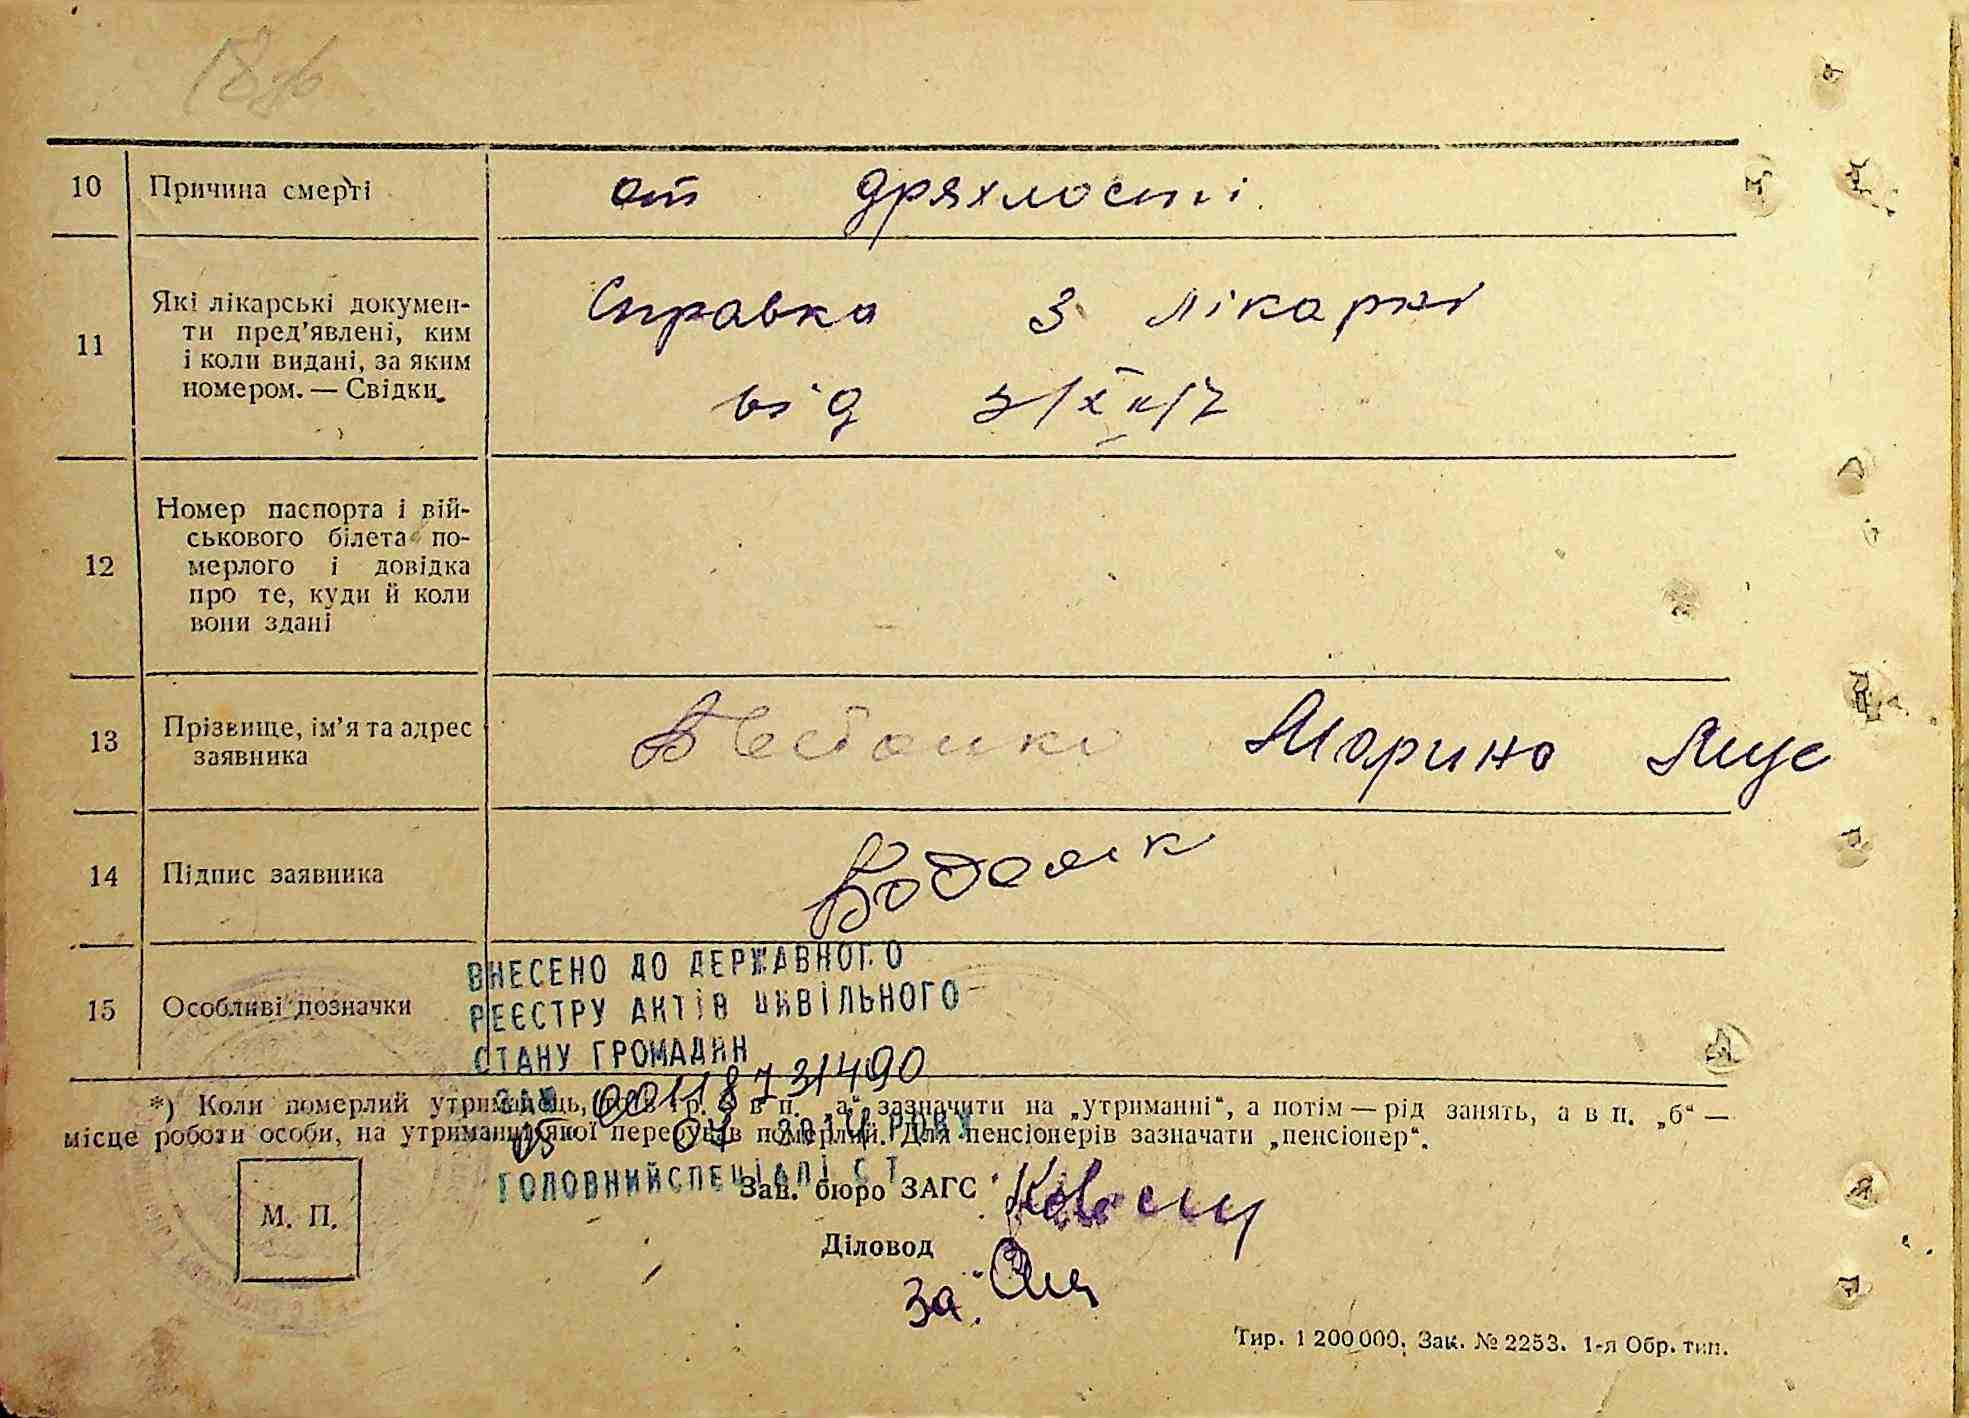 10 Причина смерті от дряхлості
11 Які лікарські докумен-
ти пред'явлені, ким
і коли видані, за яким
номером. — Свідки.
Справка з лікарні
від
12 Номер паспорта і вій-
ськового білета по-
мерлого і довідка
про те, куди й коли
вони здані
13 Прізвище, ім'я та адрес
заявника
Марина
14 Підпис заявника
15 Особливі позначки
ВНЕСЕНО ДО ДЕРЖАВНОГО
РЕЄСТРУ АКТІВ ЦИВІЛЬНОГО
СТАНУ ГРОМАДЯН
00118731490
*) Коли померлий утриманець, в гр. 9 в п. „а“ зазначити на „утриманні“, а потім — рід занять, а в п. „б“ —
місце роботи особи, на утриманні якої перебував померлий. Для пенсіонерів зазначати „пенсіонер“.
РОКУ
ГОЛОВНИЙ СПЕЦІАЛІСТ
Зав. бюро ЗАГС
М. П.
Діловод
за
Тир. 1 200 000. Зак. № 2253. 1-я Обр. тип.